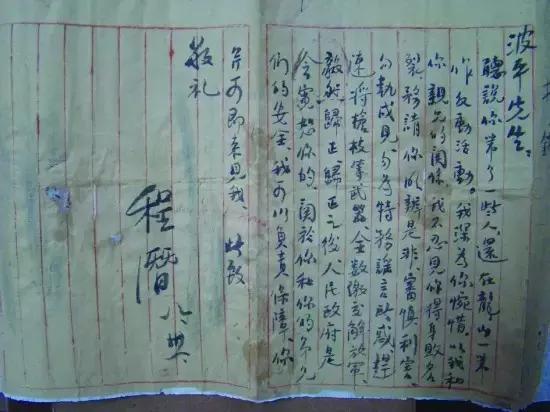 波平先生:
聽說你帶了一些人,還在龍山一带
作反動活動。我深為你惋惜。以我和
你親兄的關係,我不忍見你得身敗名
裂,務請你明辨是非,審慎利害,
勿執成見,勿為特務謠言所惑,趕
速將槍枝等武器全數繳交解放軍,
毅然歸正。歸正之後,人民政府是
會寬恕你的。關於你和你的
們的安全,我可以負責保障。你
并可即来見我。此致
敬礼
程潛